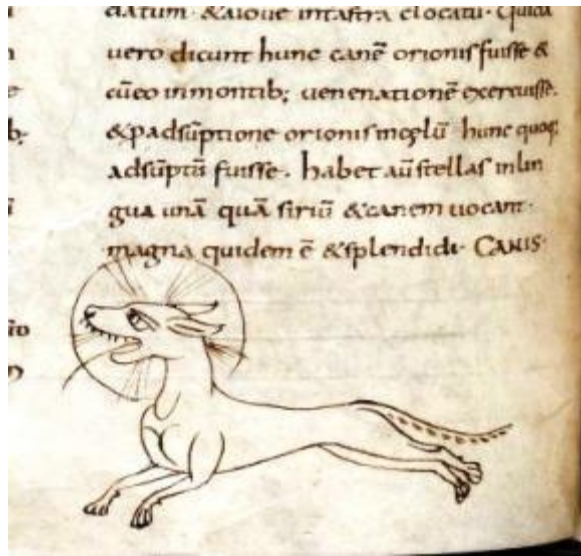 datum · & aioue intastra elocatu · Quida
uero dicunt hunc canē orionis fuisse &
cūeo inmontib; uenenationē exercuisse.
& padsūptione orionis incęlū hunc quoq;
adsūptū fuisse · habet aū stellas inlin
gua unā quā siriū & canem uocant ·
magna quidem ē & splendida · CANIS ·